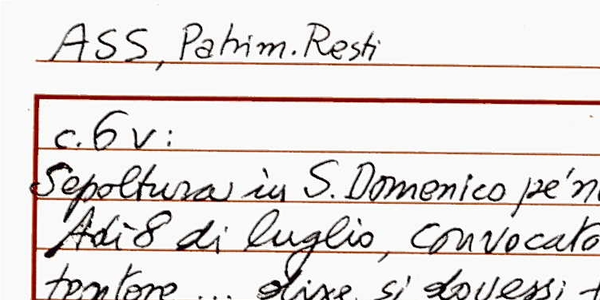 ASS, Patrim. Resti
c. 6v:
Sepoltura in S. Domenico pe' n
Adi 8 di luglio, convocato
tentore ... dixe si dovessi